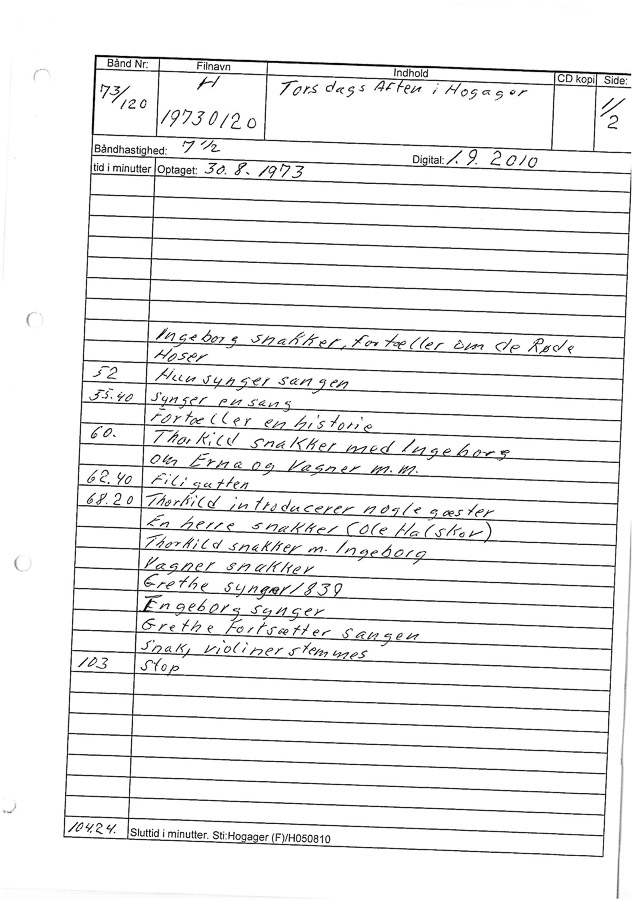 Bånd Nr: Filnavn Indhold CD kopi Side:
73/120 H Torsdags Aften i Hogager 1/2
19730120
Båndhastighed: 7 1/2 Digital: 1.9. 2010
tid i minutter Optaget: 30.8.1973
Ingeborg snakker, fortæller om de Røde
Hoser
52 Hun synger sangen
55.40 Synger en sang
Fortæller en historie
60. Thorkild snakker med Ingeborg
om Erna og Vagner m.m.
62.40 Filigatten
68.20 Thorkild introducerer nogle gæster
En herre snakker (Ole Halskov)
Thorkild snakker m. Ingeborg
Vagner snakker
Grethe synger 1839
Engeborg synger
Grethe Fortsætter sangen
Snak, violiner stemmes
103 Stop
104.24. Sluttid i minutter. Sti:Hogager (F)/H050810